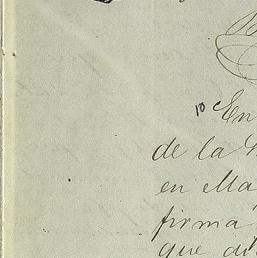 10 En
de la
en Ma
firma
que